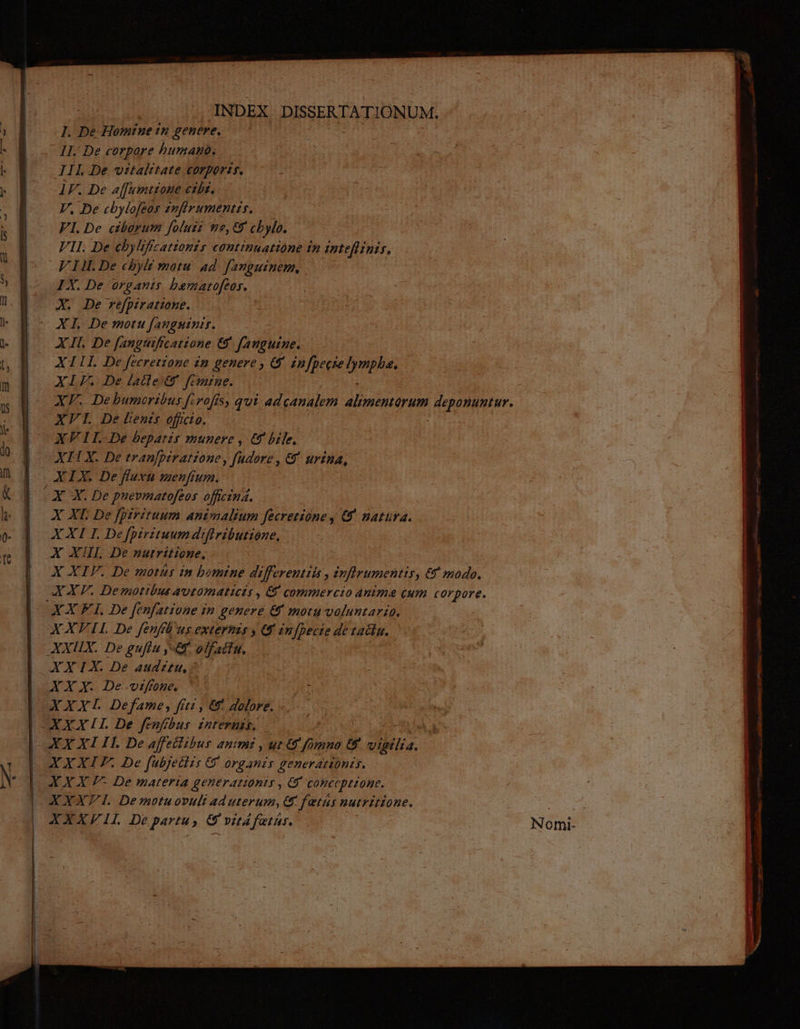 INDEX DISSERTATIONUM.
I. De Homine in genere.
II. De corpore humano.
III. De vitalitate corporis.
IV. De assumtione cibi.
V. De chyloseos instrumentis.
VI. De ciborum solutione, & chylo.
VII. De chylificationis continuatione in intestinis,
VIII. De chyli motu ad sanguinem,
IX. De organis hæmatoseos.
X. De respiratione.
XI. De motu sanguinis.
XII. De sanguificatione & sanguine.
XIII. De secretione in genere, & in specie lympha,
XIV. De lacte & semine.
XV. De humoribus serosis, qui ad canalem alimentorum deponuntur.
XVI. De lienis officio.
XVII. De hepatis munere, & bile.
XIIX. De transpiratione, sudore, & urina,
XIX. De fluxu mensium.
XX. De pnevmatoseos officina.
XXI. De spirituum animalium secretione, & natura.
XXII. De spirituum distributione,
XXIII. De nutritione,
XXIV. De motus in homine differentiis, instrumentis, & modo.
XXV. De motibus avtomaticis, & commercio animæ cum corpore.
XXVI. De sensatione in genere & motu voluntario.
XXVII. De sensibus externis, & in specie de tactu.
XXIIX. De gustu, & olfactu.
XXIX. De auditu,
XXX. De visione.
XXXI. De fame, siti, & dolore.
XXXII. De sensibus internis.
XXXIII. De affectibus animi, ut & somno & vigilia.
XXXIV. De subjectis & organis generationis.
XXXV. De materia generationis, & conceptione.
XXXVI. De motu ovuli ad uterum, & fœtus nutritione.
XXXVII. De partu, & vitâ fœtûs.
Nomi-